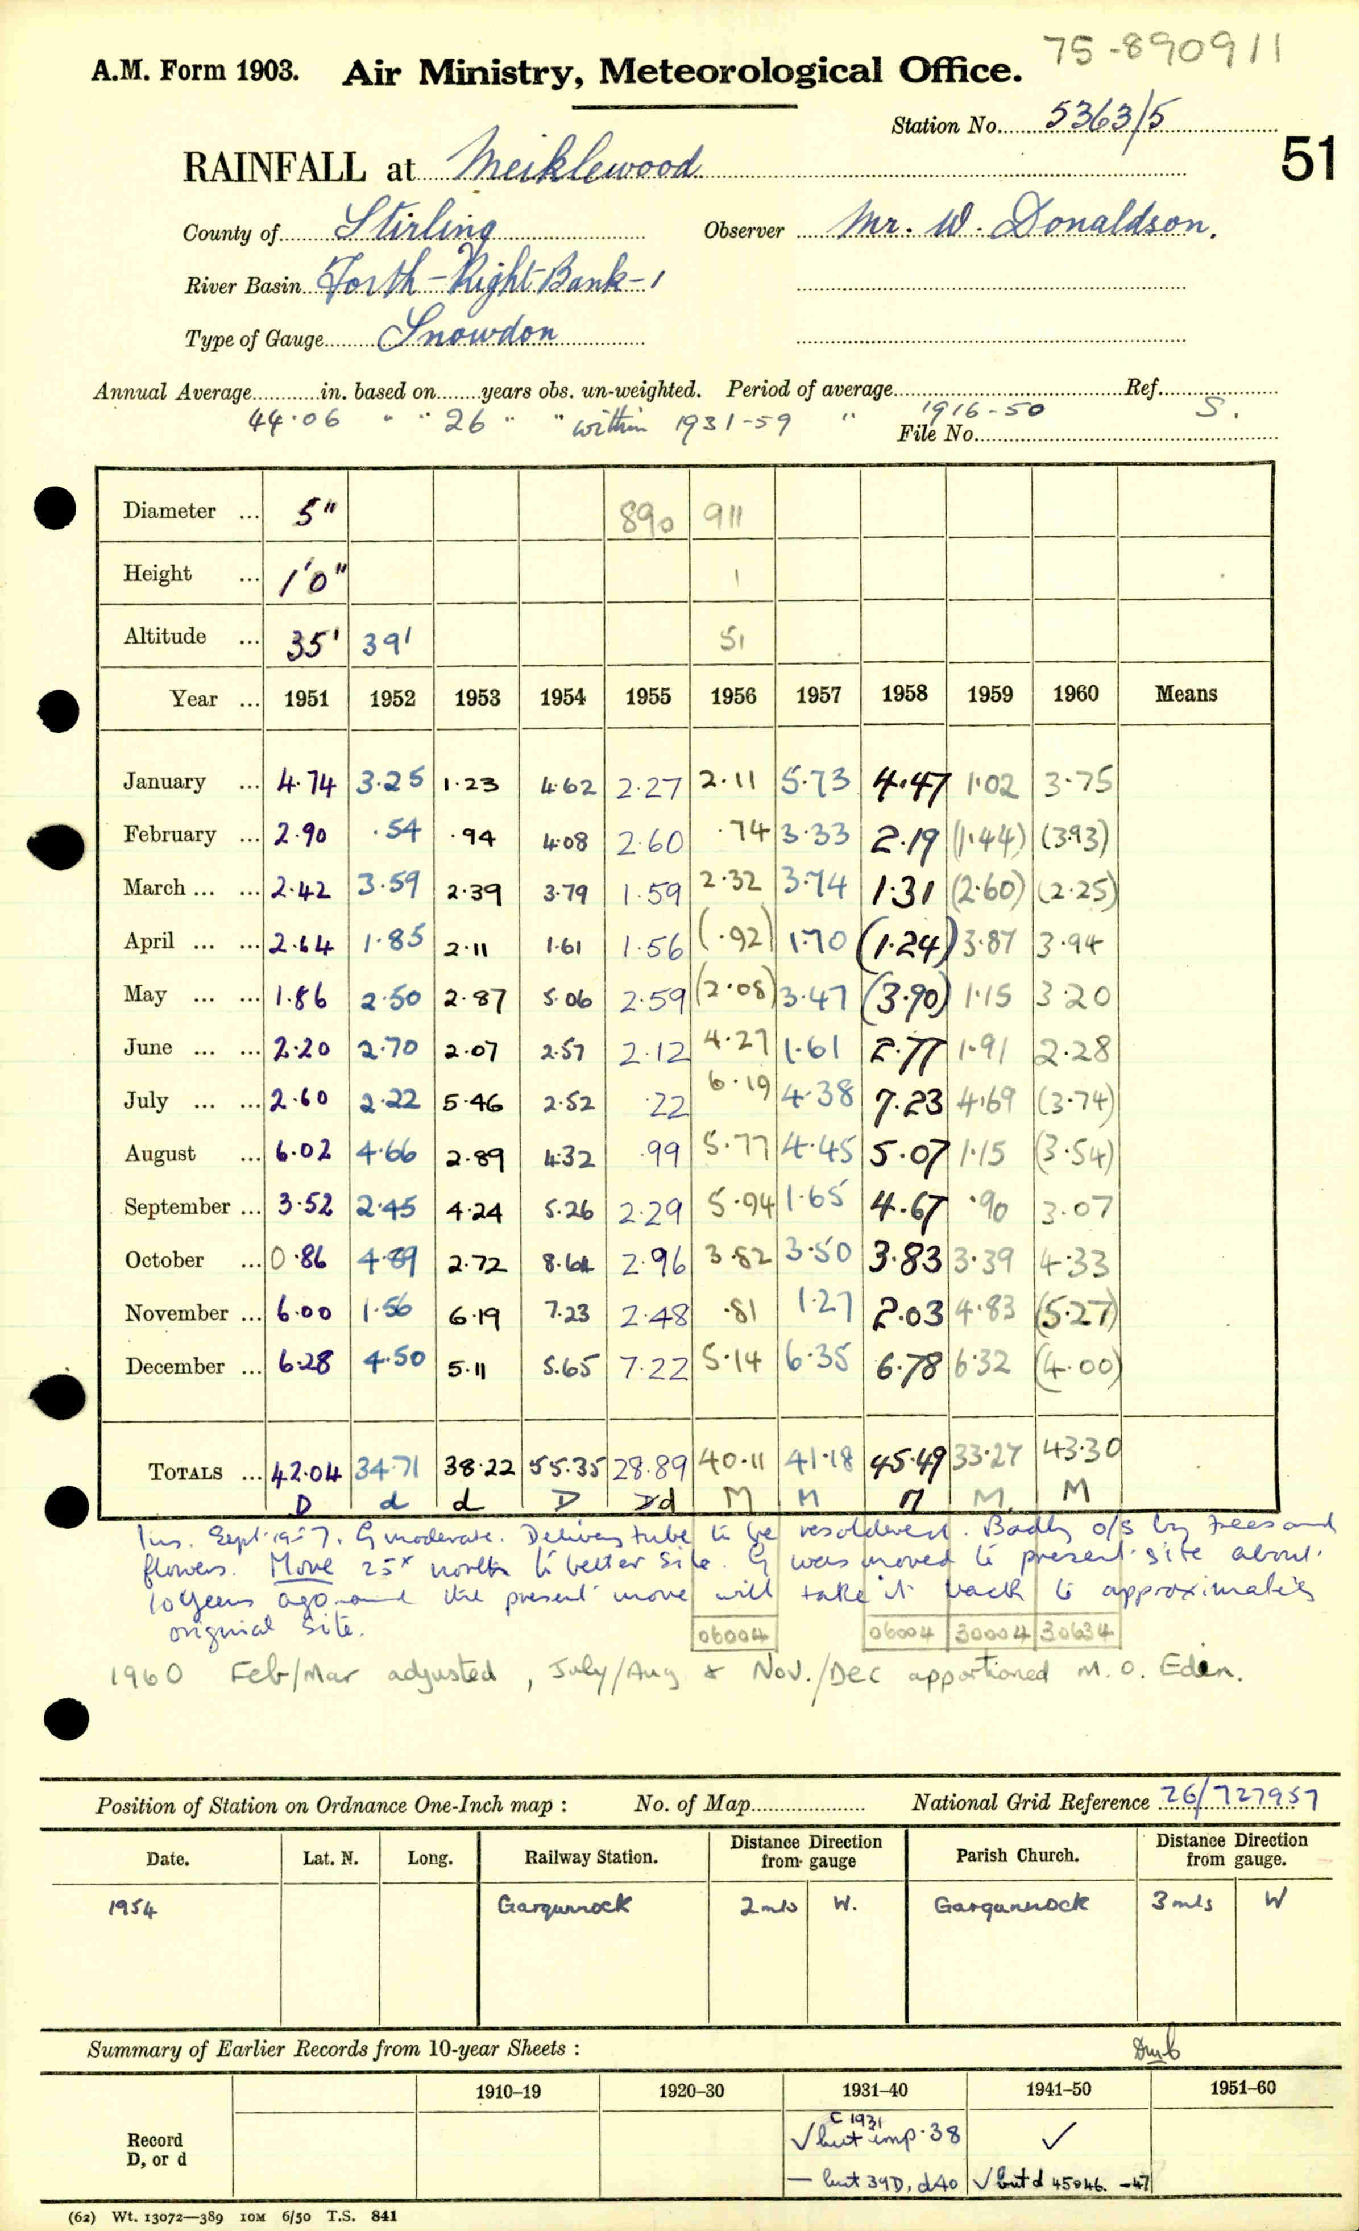 75-890911
A.M. Form 1903. Air Ministry, Meteorological Office.
Station No. 5363/5
51
RAINFALL at Meiklewood
County of Stirling Observer Mr. W. Donaldson.
River Basin Forth-Right-Bank-1
Type of Gauge Snowdon
Annual Average in. based on years obs. un-weighted. Period of average Ref.
44.06 " " 26 " " within 1931-59 " 1916-50 S.
File No.
Diameter ... 5" 890 911
Height ... 1'0" 1
Altitude ... 35' 39' 51
Year ... 1951 1952 1953 1954 1955 1956 1957 1958 1959 1960 Means
January ... 4.74 3.25 1.23 4.62 2.27 2.11 5.73 4.47 1.02 3.75
February ... 2.90 .54 .94 4.08 2.60 .74 3.33 2.19 (1.44) (3.93)
March ... ... 2.42 3.59 2.39 3.79 1.59 2.32 3.74 1.31 (2.60) (2.25)
April ... ... 2.64 1.85 2.11 1.61 1.56 (.92) 1.70 (1.24) 3.87 3.94
May ... ... 1.86 2.50 2.87 5.06 2.59 (2.08) 3.47 (3.90) 1.15 3.20
June ... ... 2.20 2.70 2.07 2.57 2.12 4.27 1.61 2.77 1.91 2.28
July ... ... 2.60 2.22 5.46 2.52 .22 6.19 4.38 7.23 4.69 (3.74)
August ... 6.02 4.66 2.89 4.32 .99 5.77 4.45 5.07 1.15 (3.54)
September ... 3.52 2.45 4.24 5.26 2.29 5.94 1.65 4.67 .90 3.07
October ... 0.86 4.89 2.72 8.64 2.96 3.82 3.50 3.83 3.39 4.33
November ... 6.00 1.56 6.19 7.23 2.48 .81 1.27 2.03 4.83 (5.27)
December ... 6.28 4.50 5.11 5.65 7.22 5.14 6.35 6.78 6.32 (4.00)
TOTALS ... 42.04 34.71 38.22 55.35 28.89 40.11 41.18 45.49 33.27 43.30
D d d D d M M M M M
Ins. Sept. 1957. G moderate. Delivery tube to be resoldered. Badly o/s by trees and
flowers. Move 25x north to better site. G was moved to present site about
10 years ago and the present move will take it back to approximately
original site.
06004 06004 30004 30634
1960 Feb/Mar adjusted, July/Aug & Nov./Dec apportioned M.O. Edin.
Position of Station on Ordnance One-Inch map : No. of Map National Grid Reference 26/727957
Date. Lat. N. Long. Railway Station. Distance Direction from gauge Parish Church. Distance Direction from gauge.
1954 Gargunnock 2 mls W. Gargunnock 3 mls W
Summary of Earlier Records from 10-year Sheets :
1910–19 1920–30 1931–40 1941–50 1951–60
Record
D, or d
C 1931
√ but imp. 38 ✓
— but 39D, d40 √ but d 45 & 46. -47
(62) Wt. 13072—389 10M 6/50 T.S. 841